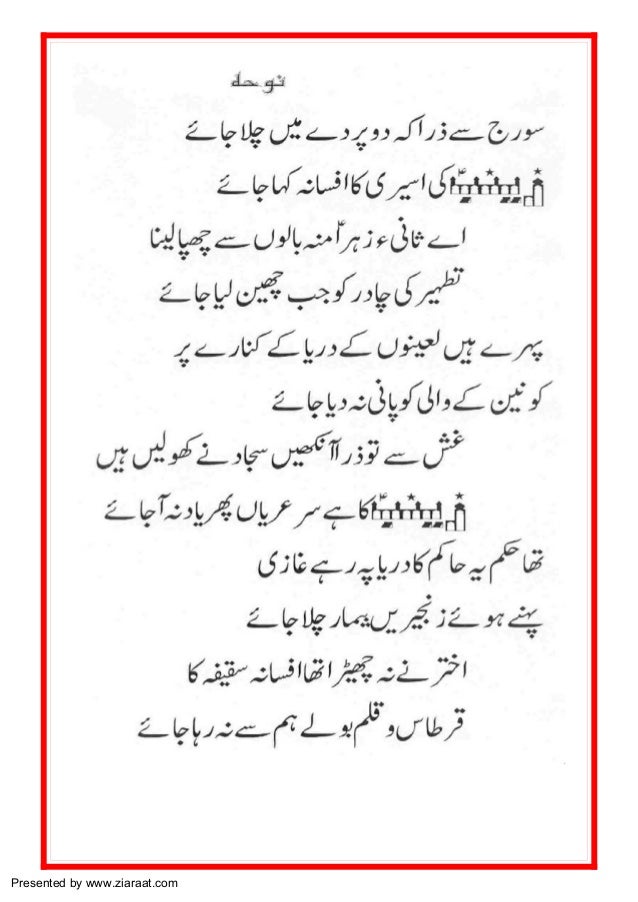 نوحہ
سورج سے ذرا کہ دو پردے میں چلا جائے
زینبؑ کی اسیری کا افسانہ کہا جائے
اے ثانیء زہراؑ منہ بالوں سے چھپا لینا
تطہیر کی چادر کو جب چھین لیا جائے
پہرے ہیں لعینوں کے دریا کے کنارے پر
کونین کے والی کو پانی نہ دیا جائے
غش سے تو ذرا آنکھیں سجاد نے کھولیں ہیں
زینبؑ کا ہے سر عریاں پھر یاد نہ آ جائے
تھا حکم یہ حاکم کا دریا پہ رہے غازی
پہنے ہوئے زنجیریں بیمار چلا جائے
اختر نے نہ چھیڑا تھا افسانہ سقیفہ کا
قرطاس و قلم بولے ہم سے نہ رہا جائے
Presented by www.ziaraat.com